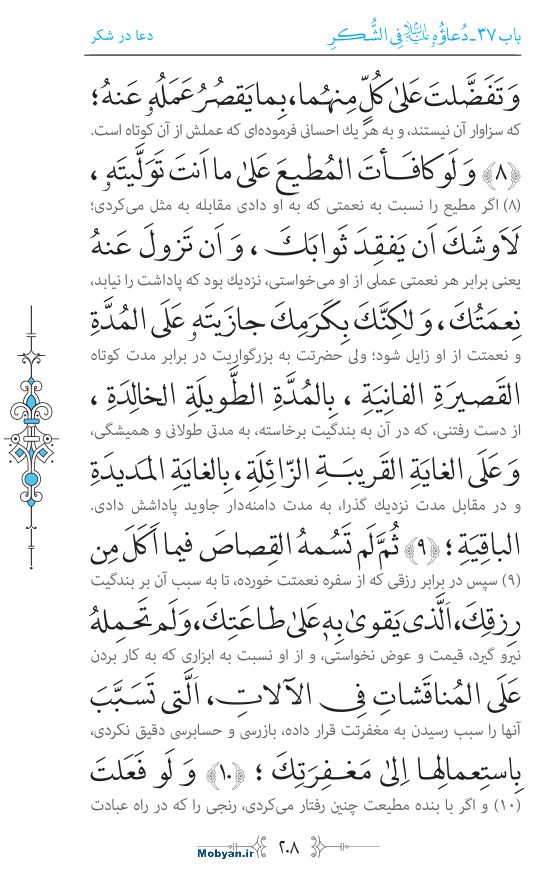 باب ۳۷ـ دُعاؤُه علیه‌السلام فِی الشُّکرِ
دعا در شکر
وَ تَفَضَّلتَ عَلیٰ کُلٍّ مِنهُما، بِما یَقصُرُ عَمَلُهُ عَنهُ؛
که سزاوار آن نیستند، و به هر یك احسانی فرموده‌ای که عملش از آن کوتاه است.
﴿۸﴾ وَ لَو کافَأتَ المُطیعَ عَلیٰ ما اَنتَ تَوَلَّیتَهُ ،
(۸) اگر مطیع را نسبت به نعمتی که به او دادی مقابله به مثل می‌کردی؛
لَاَوشَكَ اَن یَفقِدَ ثَوابَكَ ، وَ اَن تَزولَ عَنهُ
یعنی برابر هر نعمتی عملی از او می‌خواستی، نزدیك بود که پاداشت را نیابد،
نِعمَتُكَ، وَلٰکِنَّكَ بِکَرَمِكَ جازَیتَهُ عَلَی المُدَّةِ
و نعمتت از او زایل شود؛ ولی حضرتت به بزرگواریت در برابر مدت کوتاه
القَصیرَةِ الفانِیَةِ ، بِالمُدَّةِ الطَّویلَةِ الخالِدَةِ ،
از دست رفتنی، که در آن به بندگیت برخاسته، به مدتی طولانی و همیشگی،
وَ عَلَی الغایَةِ القَریبَةِ الزّائِلَةِ، بِالغایَةِ المَدیدَةِ
و در مقابل مدت نزدیك گذرا، به مدت دامنه‌دار جاوید پاداشش دادی.
الباقِیَةِ ؛ ﴿۹﴾ ثُمَّ لَم تَسُمهُ القِصاصَ فیما اَکَلَ مِن
(۹) سپس در برابر رزقی که از سفره نعمتت خورده، تا به سبب آن بر بندگیت
رِزقِكَ، اَلَّذی یَقویٰ بِهٖ عَلیٰ طاعَتِكَ، وَلَم تَحمِلهُ
نیرو گیرد، قیمت و عوض نخواستی، و از او نسبت به ابزاری که به کار بردن
عَلَی المُناقَشاتِ فِی الآلاتِ، اَلَّتی تَسَبَّبَ
آنها را سبب رسیدن به مغفرتت قرار داده، بازرسی و حسابرسی دقیق نکردی،
بِاستِعمالِها اِلیٰ مَغفِرَتِكَ ؛ ﴿۱۰﴾ وَ لَو فَعَلتَ
(۱۰) و اگر با بنده مطیعت چنین رفتار می‌کردی، رنجی را که در راه عبادت
۲۰۸
Mobyan.ir